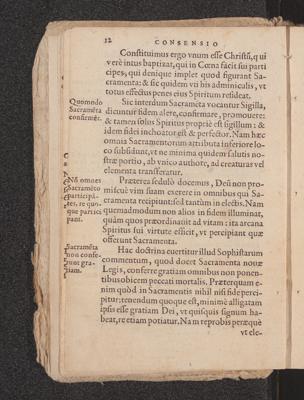 12 CONSENSIO
Constituimus ergo vnum esse Christū, qui
verè intus baptizat, qui in Cœna facit sui parti
cipes, qui denique implet quod figurant Sa-
cramenta: & sic quidem vti his adminiculis, vt
totus effectus penes eius Spiritum resideat.
Quomodo
Sacramēta
confirmēt.
Sic interdum Sacramēta vocantur Sigilla,
dicuntur fidem alere, confirmare, promouere:
& tamen solus Spiritus propriè est sigillum: &
idem fidei inchoator est & perfector. Nam hæc
omnia Sacramentorum attributa inferiore lo-
co subsidunt, vt ne minima quidem salutis no-
stræ portio, ab vnico authore, ad creaturas vel
elementa transferatur.
Nō omnes
Sacramēto
participā-
tes, re quo-
que partici
pant.
Præterea sedulò docemus, Deū non pro-
miscuè vim suam exerere in omnibus qui Sa-
cramenta recipiunt: sed tantùm in electis. Nam
quemadmodum non alios in fidem illuminat,
quàm quos præordinauit ad vitam: ita arcana
Spiritus sui virtute efficit, vt percipiant quæ
offerunt Sacramenta.
Sacramēta
non confe-
runt gra-
tiam.
Hac doctrina euertitur illud Sophistarum
commentum, quod docet Sacramenta nouæ
Legis, conferre gratiam omnibus non ponen-
tibus obicem peccati mortalis. Præterquam e-
nim quòd in Sacramentis nihil nisi fide perci-
pitur: tenendum quoque est, minimè alligatam
ipsis esse gratiam Dei, vt quisquis signum ha-
beat, re etiam potiatur. Nam reprobis peræquè
vt ele-